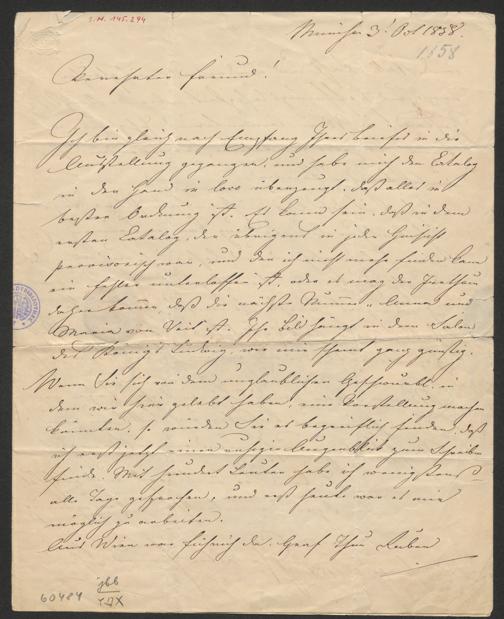 I.N. 145.294
München 3t Oct 1858.
1858
Verehrter Freund!
Ich bin gleich nach Empfang Ihres Briefes in die
Ausstellung gegangen, und habe mich den Catalog
in der Hand in loco überzeugt, daß alles in
bester Ordnung ist. Es kann sein, daß in dem
ersten Catalog, der übrigens in jeder Hinsicht
provisorisch war, und den ich nicht mehr finden kann
ein Fehler unterlaufen ist, oder es mag der Irrthum
daher kommen, daß die nächste Numer " und
Maria von Veit ist. Ihr Bild hängt in dem Salon
des Königs Ludwig, wie mir scheint ganz günstig.
Wenn Sie sich von dem unglaublichen in
dem wir hier gelebt haben, eine Vorstellung machen
könnten, so würden Sie es begreiflich finden, daß
ich erst jetzt einen ruhigen Augenblick zum Schreiben
finde. Mit hundert Leuten habe ich wenigstens
alle Tage gesprochen, und erst heute war es mir
möglich zu arbeiten.
Aus Wien war da. Graf Thun Ruben
60484